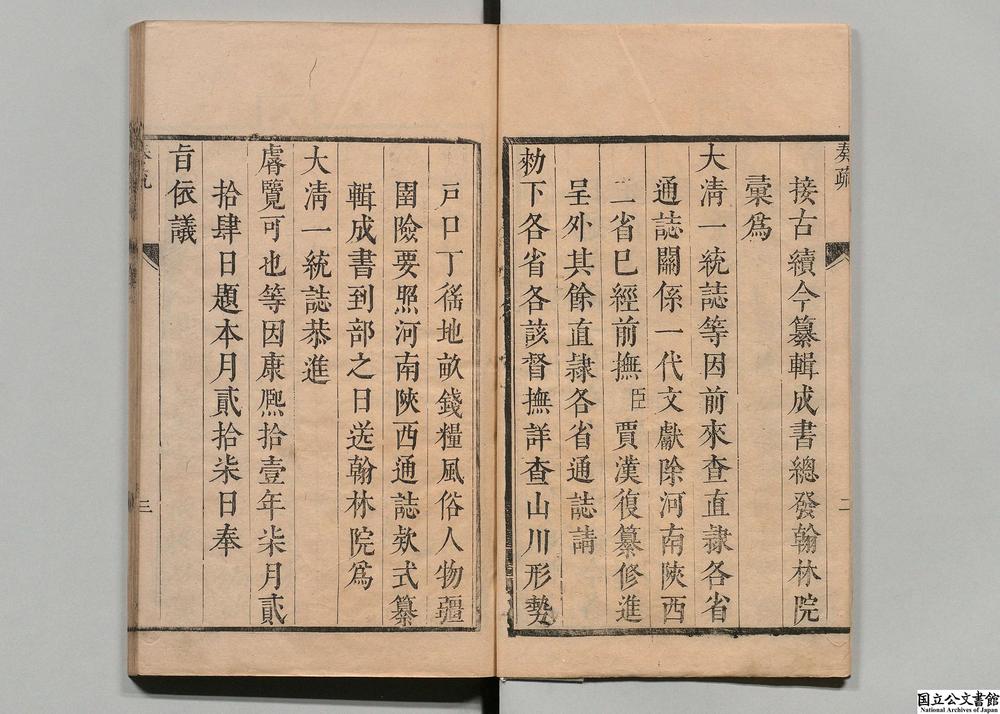 奏疏
二
接古續今纂輯成書總發翰林院
彙爲
大淸一統誌等因前來查直隷各省
通誌關係一代文獻除河南陜西
二省已經前撫臣賈漢復纂修進
呈外其餘直隷各省通誌請
勑下各省各該督撫詳查山川形勢
戸口丁徭地畝錢糧風俗人物疆
圉險要照河南陜西通誌欵式纂
輯成書到部之日送翰林院爲
大淸一統誌恭進
睿覽可也等因康熈拾壹年柒月貳
拾肆日題本月貳拾柒日奉
旨依議
奏疏
三
国立公文書館
National Archives of Japan